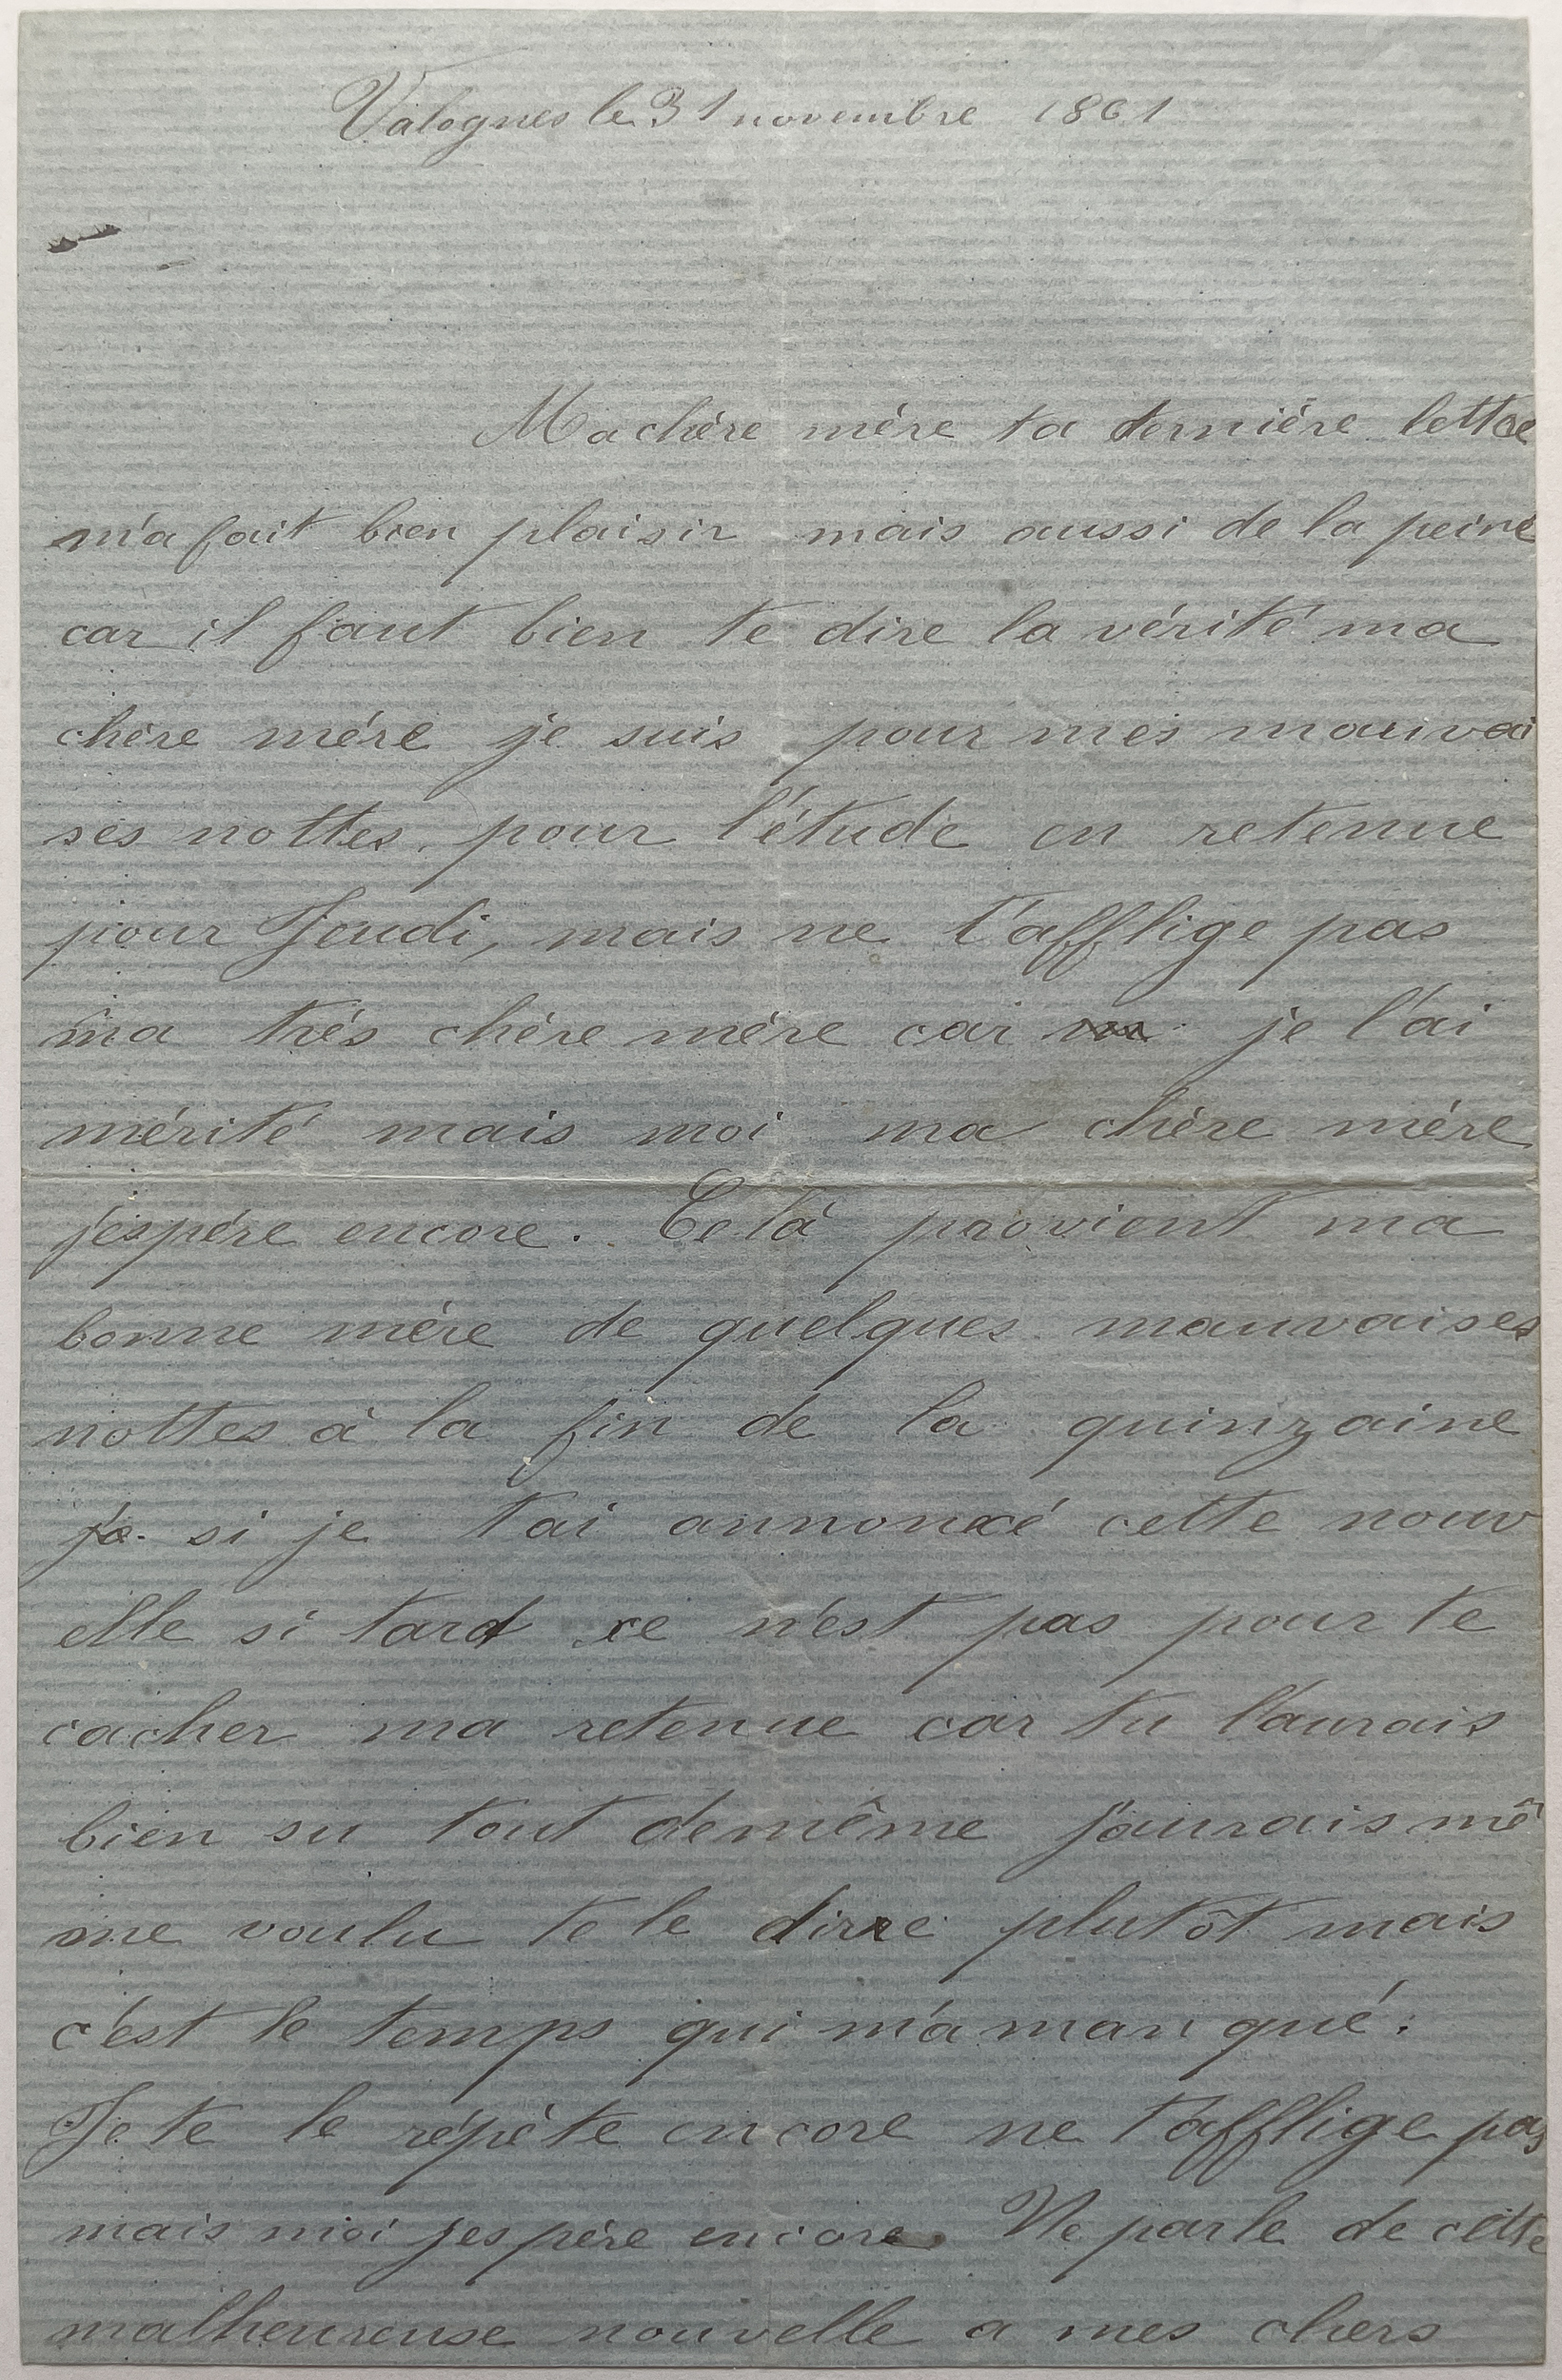 Valognes le 31 novembre 1861
Ma chère mère ta dernière lettre
m'a fait bien plaisir mais aussi de la peine
car il faut bien te dire la vérité ma
chère mère je suis pour mes mauvai
ses nottes pour l'étude en retenue
pour Jeudi, mais ne t'afflige pas
ma très chère mère car je l'ai
mérité mais moi ma chère mère
j'espère encore. Celà provient ma
bonne mère de quelques mauvaises
nottes à la fin de la quinzaine
je si je t'ai annoncé cette nouv
elle si tard ce n'est pas pour te
cacher ma retenue car tu l'aurais
bien su tout demême j'aurais mê
me voulu te le dire plutôt mais
c'est le temps qui m'a manqué.
Je te le répète encore ne t'afflige pas
mais moi j'espère encore. Ne parle de cette
malheureuse nouvelle a mes chers